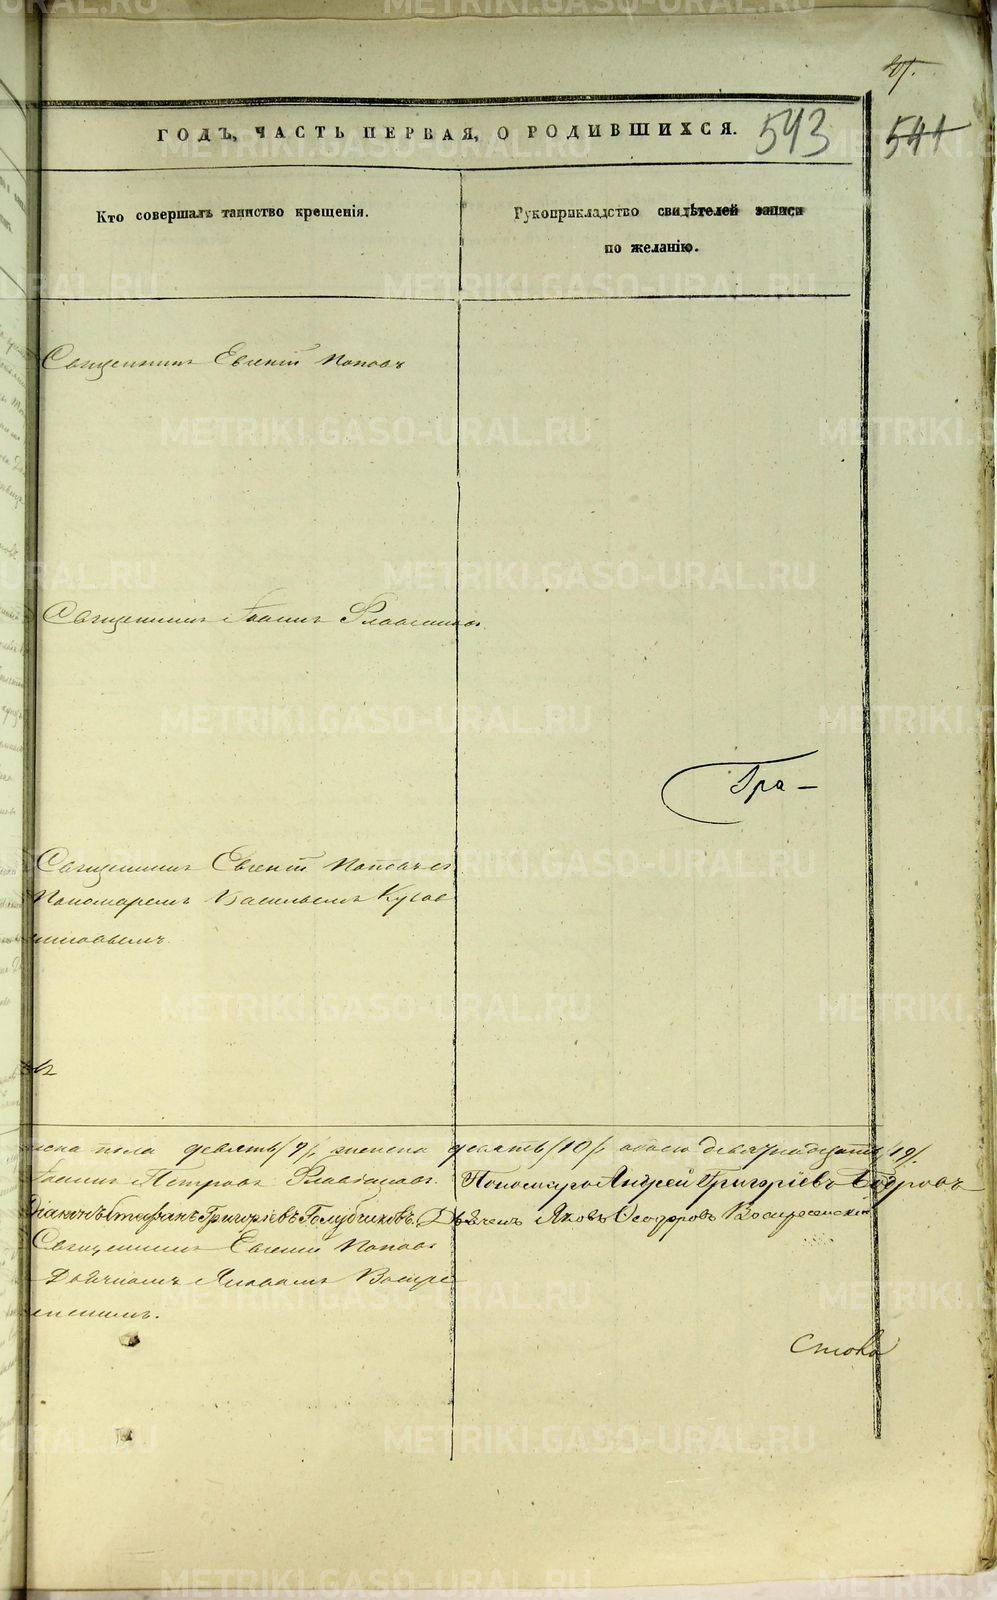 ГОДЪ, ЧАСТЬ ПЕРВАЯ, О РОДИВШИХСЯ. 543 544
Кто совершалъ таинство крещенія.
Рукоприкладство свидѣтелей записи
по желанію.
Священникъ Евгеній Поповъ
Священникъ Іоаннъ
Гра-
Священникъ Евгеній Поповъ съ
Пономаремъ Васильемъ
пола девять /9/, женска десять /10/, обоего девятнадцать /19/.
Іоаннъ Петровъ Пономарь Андрей Григорьевъ Бобровъ
Діаконъ Стефанъ Григорьевъ Голубчиковъ. Дьячекъ Яковъ Ѳеодоровъ Воскресенскій
Священникъ Евгеній Поповъ
Дьячкомъ Яковомъ Воскре
сенскимъ.
Слова
METRIKI.GASO-URAL.RU